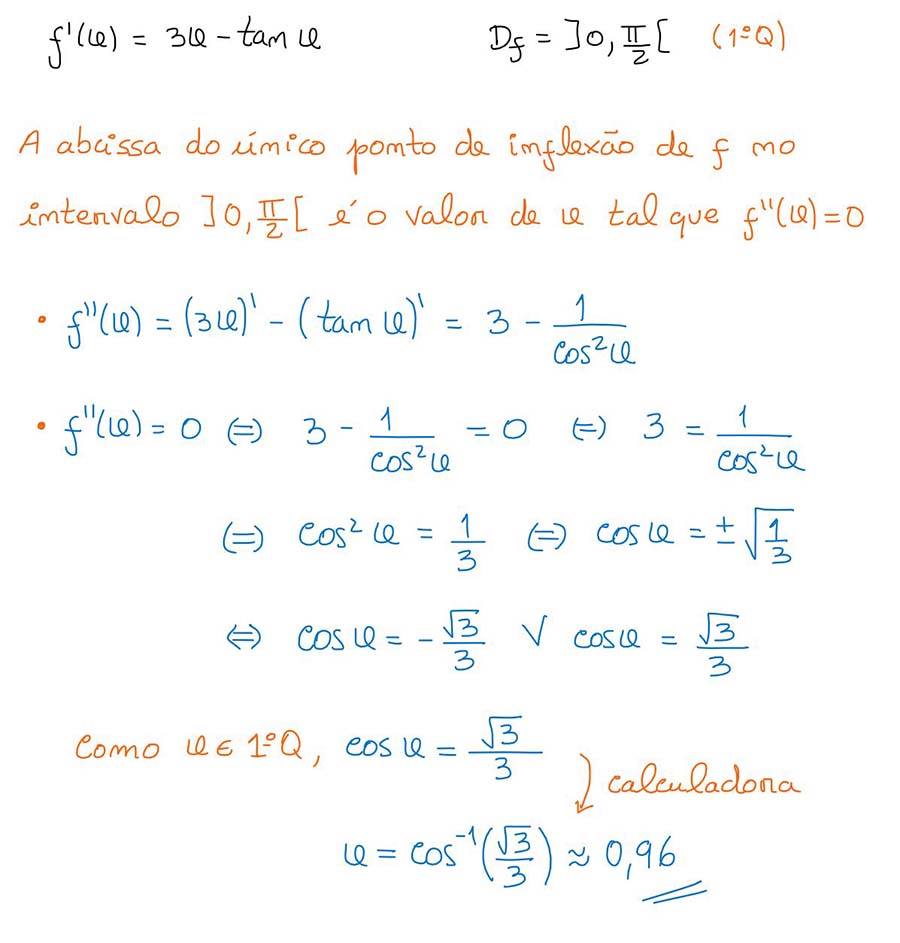 f'(x) = 3x - tan x    D_f = ]0, π/2[ (1ºQ)
A abcissa do único ponto de inflexão de f no
intervalo ]0, π/2[ é o valor de x tal que f''(x) = 0
• f''(x) = (3x)' - (tan x)' = 3 - 1/cos²x
• f''(x) = 0 (=) 3 - 1/cos²x = 0 (=) 3 = 1/cos²x
(=) cos²x = 1/3 (=) cos x = ±√(1/3)
(=) cos x = -√3/3 ∨ cos x = √3/3
Como x ∈ 1ºQ, cos x = √3/3
calculadora
x = cos⁻¹(√3/3) ≈ 0,96